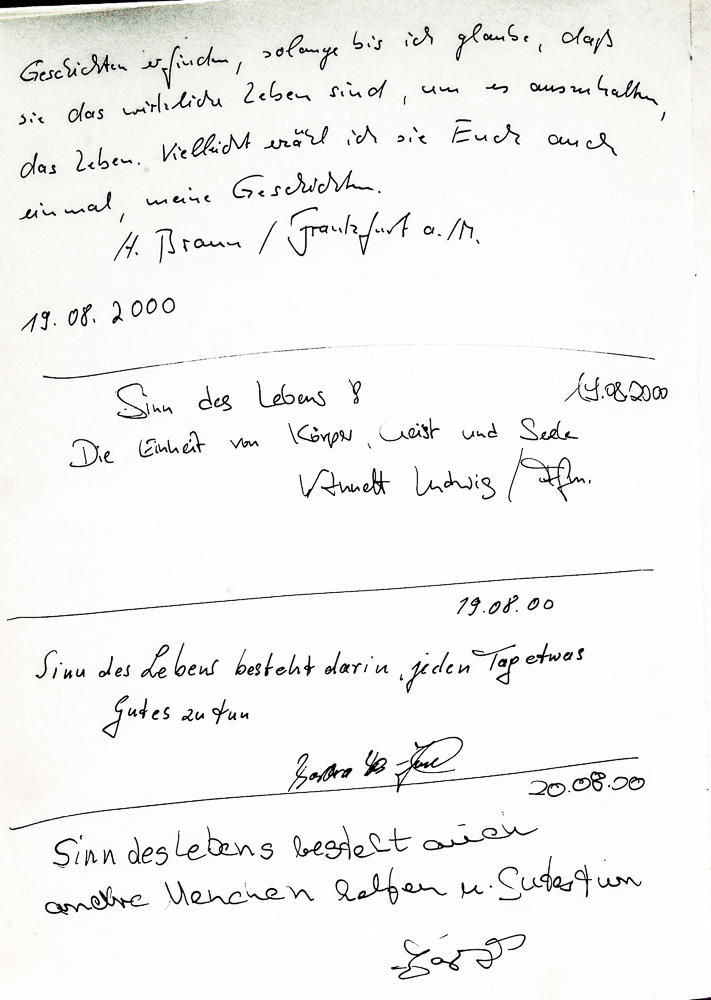 Geschichten erfinden, solange bis ich glaube, daß
sie das wirkliche Leben sind, um es auszuhalten,
das Leben. Vielleicht erzähl ich sie Euch auch
einmal, meine Geschichten.
H. Braun / Frankfurt a./M.
19.08.2000
Sinn des Lebens ?
19.08.2000
Die Einheit von Körper, Geist und Seele
Annett Ludwig / Ffm.
19.08.00
Sinn des Lebens besteht darin, jeden Tag etwas
Gutes zu tun
Barbara
20.08.00
Sinn des Lebens besteht auch
andere Menchen helfen u. Gutes tun